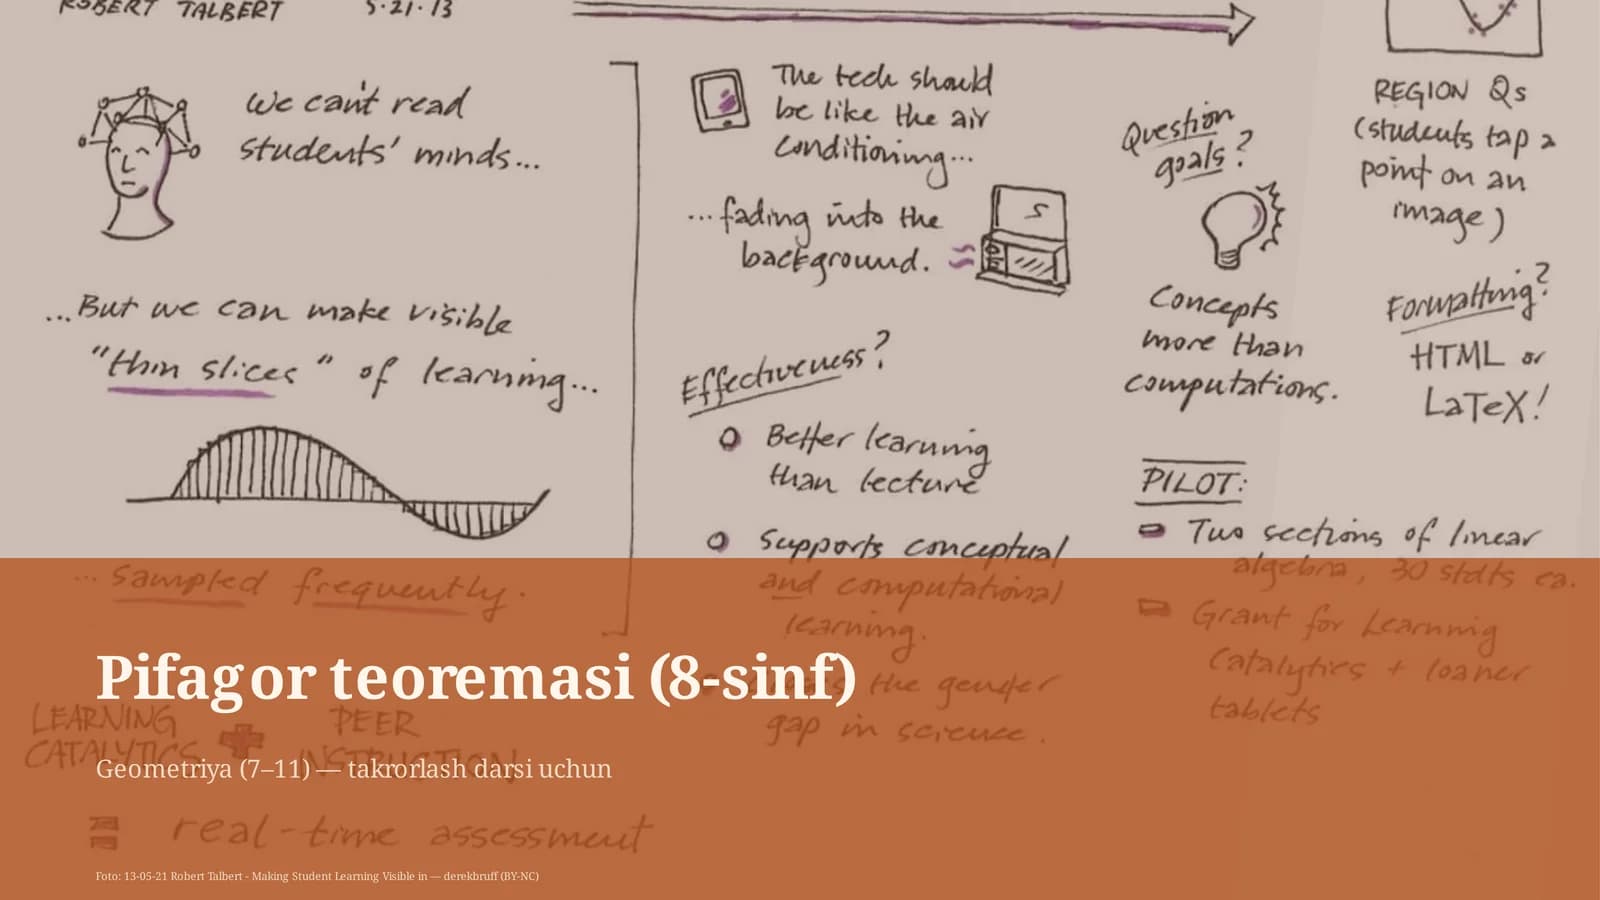 ROBERT TALBERT 5·21·13
We can't read
students' minds...
...But we can make visible
"thin slices" of learning...
... sampled frequently.
LEARNING
CATALYTICS
PEER
INSTRUCTION
real-time assessment
The tech should
be like the air
conditioning...
...fading into the
background.
Effectiveness?
Better learning
than lecture
Supports conceptual
and computational
learning.
the gender
gap in science.
Question
goals?
Concepts
more than
computations.
REGION Qs
(students tap a
point on an
image)
Formatting?
HTML or
LaTeX!
PILOT:
Two sections of linear
algebra, 30 stdts ea.
Grant for Learning
Catalytics + loaner
tablets
Pifagor teoremasi (8-sinf)
Geometriya (7–11) — takrorlash darsi uchun
Foto: 13-05-21 Robert Talbert - Making Student Learning Visible in — derekbruff (BY-NC)